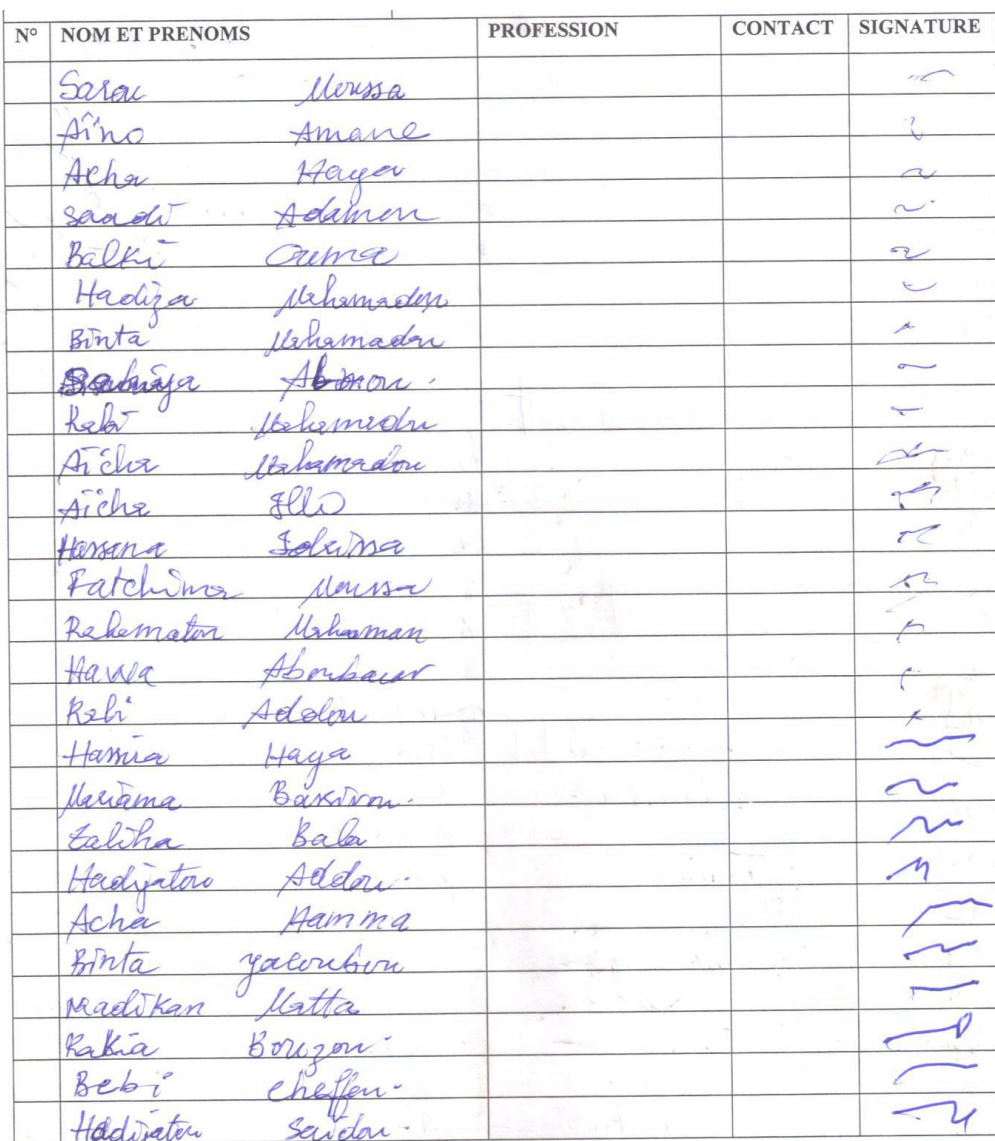 N° NOM ET PRENOMS PROFESSION CONTACT SIGNATURE
Sarou Moussa
Aïno Amane
Acha Haya
Saadi Adamou
Balki Ouma
Hadiza Mahamadou
Binta Mahamadou
Abinou
Rabi Mahamadou
Aïcha Mahamadou
Aïcha Illo
Hassana Idrissa
Fatchima Moussa
Rahamatou Mahaman
Hawa Aboubacar
Rabi Addou
Hassia Haya
Mariama Bassirou
Zaliha Bala
Hadijatou Addou
Acha Hamma
Binta Yacoubou
Madikan Matta
Rakia Bouzou
Bebi Cheffou
Hadijatou Saidou